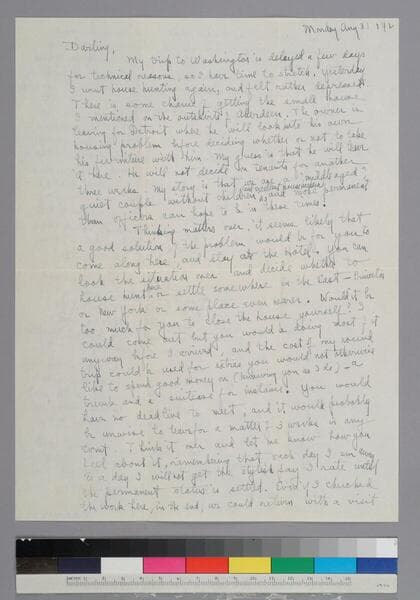 Monday Aug 31 1942
Darling,
My trip to Washington is delayed a few days
for technical reasons, so I have time to stretch. Yesterday
I went house hunting again, and felt rather depressed.
There is some chance of getting the small house
I mentioned on the outskirts of Aberdeen. The owner is
leaving for Detroit where he will look into his own
housing problem before deciding whether or not to take
his furniture with him. My guess is that he will leave
it here. He will not decide on tenants for another
three weeks. My story is that we are a "middle aged"
quiet couple without children and more permanent
than officers can hope to be in these times.
Thinking matters over, it seems likely that
a good solution of the problem would be for you to
come along here and stay at the Hotel. You can
look the situation over and decide whether to
house hunt here or settle somewhere in the East - Princeton
or New York or some place even nearer. Would it be
too much for you to close the house yourself? I
could come out but you would be doing most of it
anyway before I arrived, and the cost of my round
trip could be used for extras you would not otherwise
like to spend good money on (knowing you as I do) - a
trunk and a suitcase for instance. You would
have no deadline to meet, and it would probably
be unwise to leave for a matter of weeks in any
event. Think it over and let me know how you
feel about it, remembering that each day I am away
is a day I will not get the stylish pay I rate until
the permanent status is settled. Even if I chucked
the work here, in the end, we could return with a visit